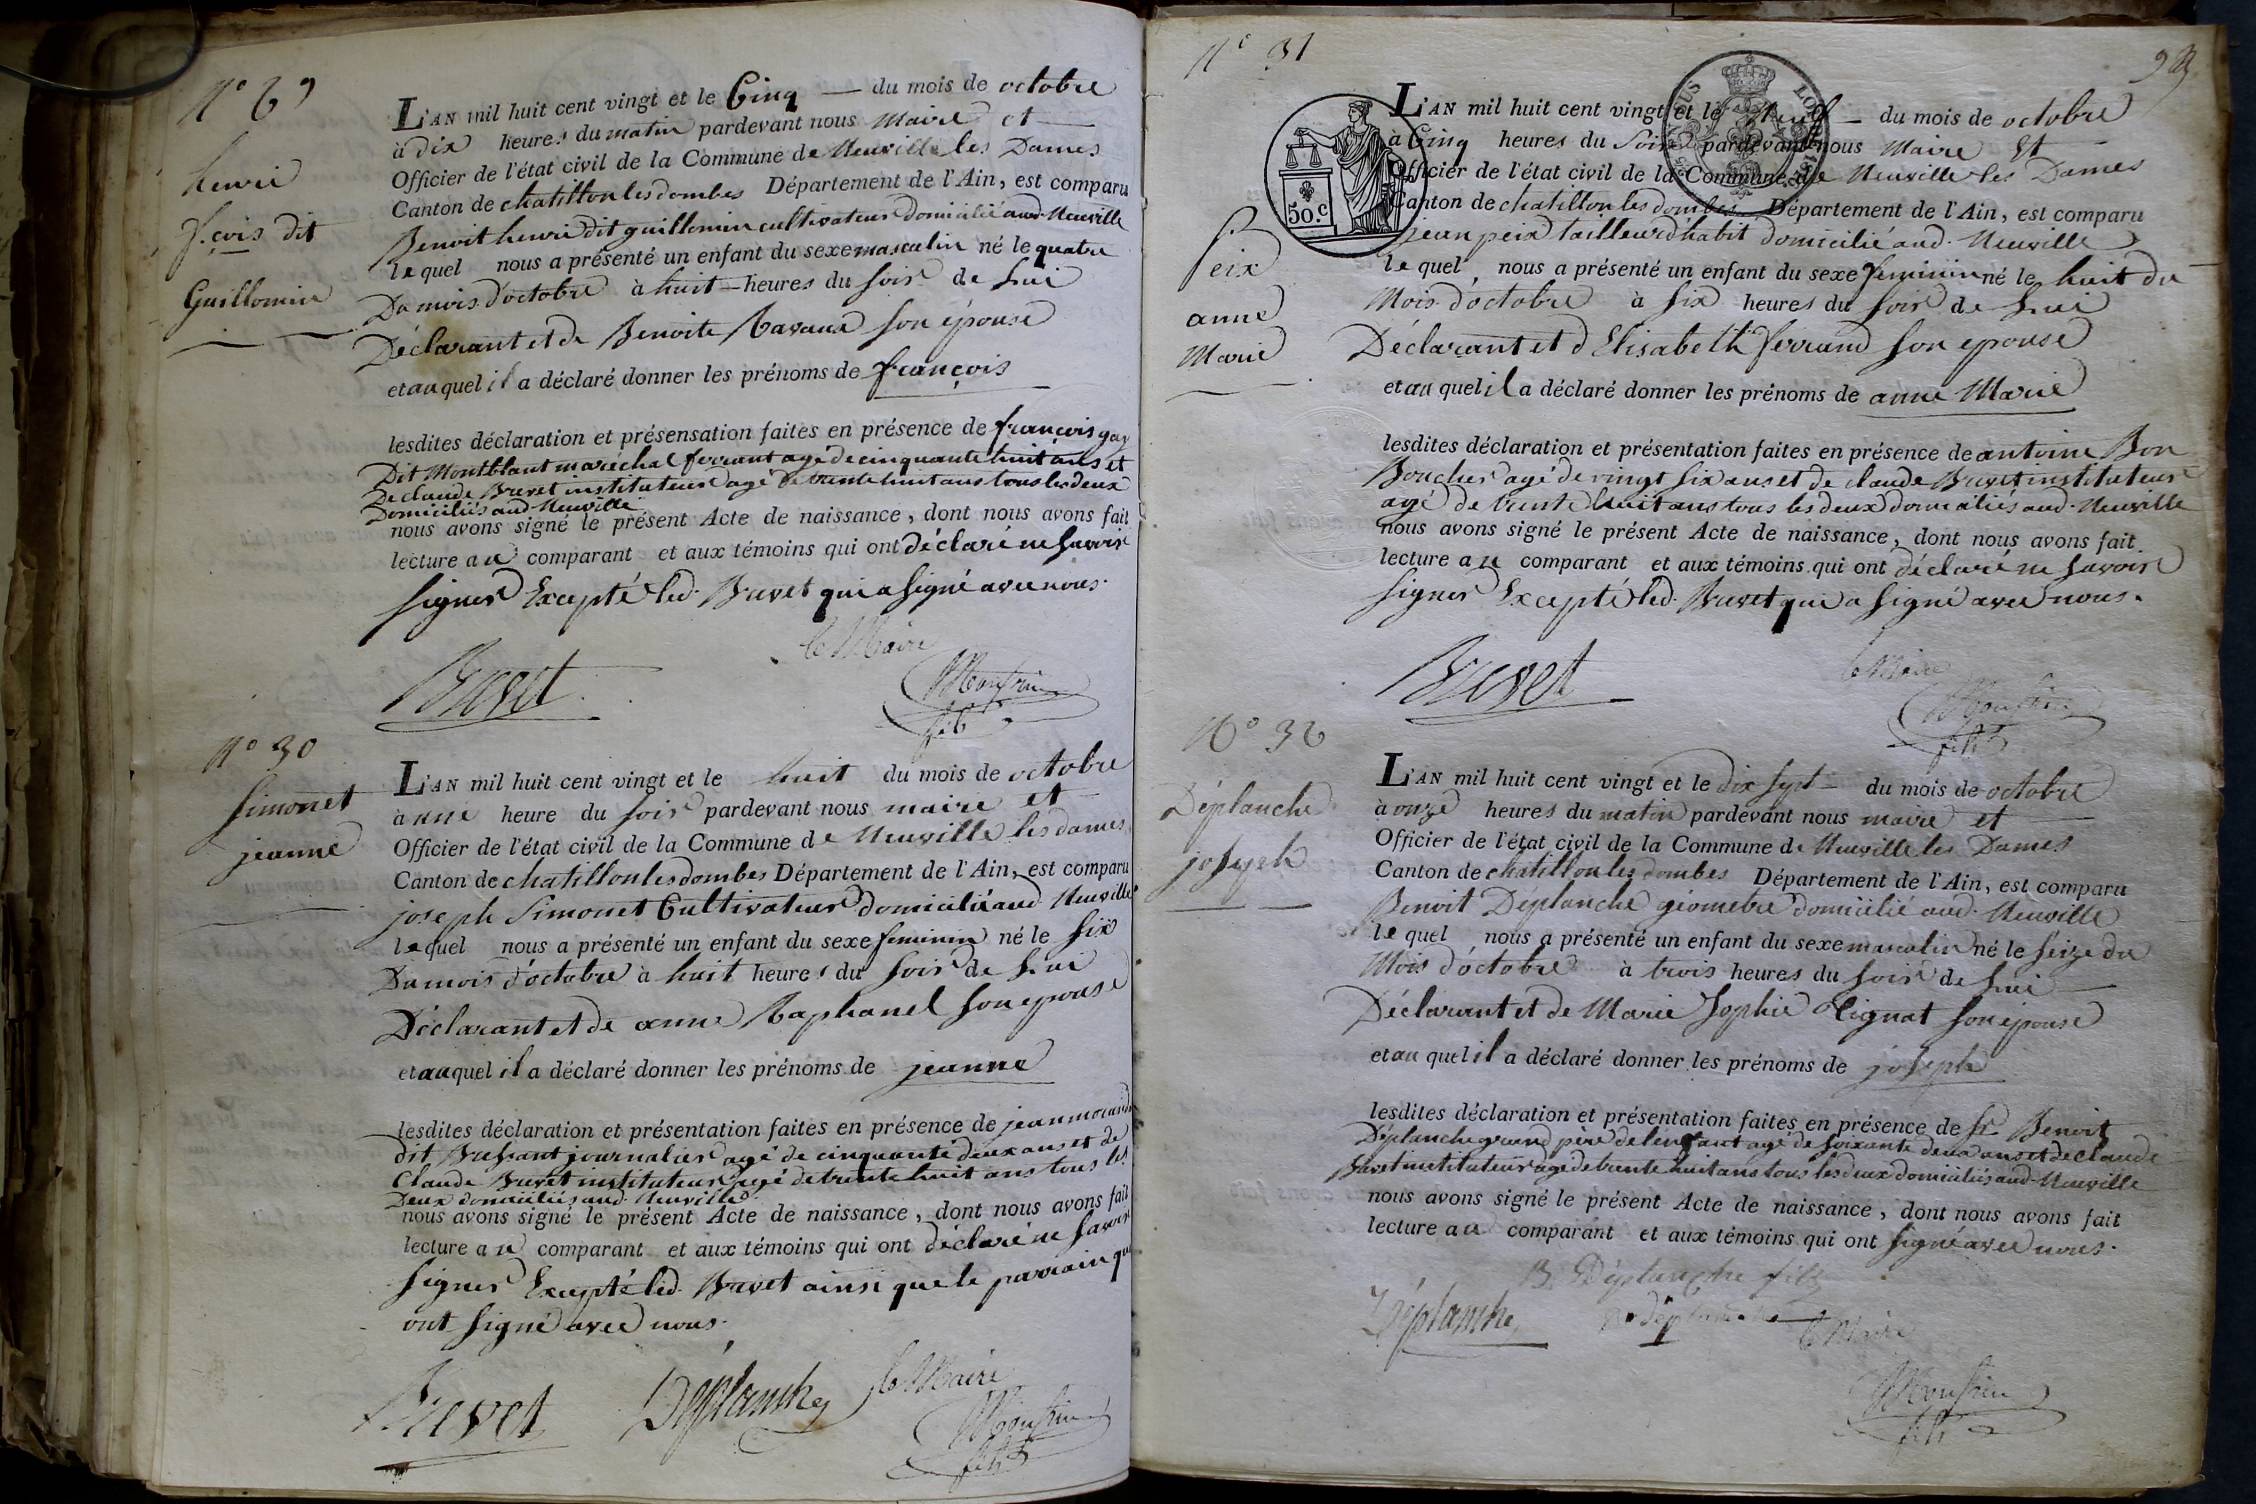 N° 29
henri
f.çois dit
Guillomin
L'AN mil huit cent vingt et le Cinq — du mois de octobre
à dix heures du matin pardevant nous Maire et
Officier de l'état civil de la Commune de Neuville les Dames
Canton de chatillon les dombes Département de l'Ain, est comparu
Benoit henri dit guillomin cultivateur domicilié aud. Neuville
lequel nous a présenté un enfant du sexe masculin né le quatre
Du mois d'octobre à huit heures du soir de Lui
Déclarant et de Benoite Ravaux son épouse
et auquel il a déclaré donner les prénoms de françois
lesdites déclaration et présensation faites en présence de françois gay
Dit Montblant maréchal ferrant agé de cinquante huit ans et
De claude Buvet instituteur agé de trente huit ans tous les deux
Domiciliés aud. Neuville
nous avons signé le présent Acte de naissance, dont nous avons fait
lecture au comparant et aux témoins qui ont déclaré ne savoir
signer Excepté led. Buvet qui a signé avec nous.
le Maire
Buvet
fils
N° 30
Simonet
jeanne
L'AN mil huit cent vingt et le huit du mois de octobre
à une heure du soir pardevant nous maire et
Officier de l'état civil de la Commune de Neuville les dames
Canton de chatillon les dombes Département de l'Ain, est comparu
joseph Simonet Cultivateur domicilié aud Neuville
lequel nous a présenté un enfant du sexe feminin né le six
Du mois d'octobre à huit heures du soir de Lui
Déclarant et de anne Raphanel son epouse
et auquel il a déclaré donner les prénoms de jeanne
lesdites déclaration et présentation faites en présence de jean
dit journalier agé de cinquante deux ans et de
Claude Buvet instituteur agé de trente huit ans tous les
Deux domiciliés aud. Neuville
nous avons signé le présent Acte de naissance, dont nous avons fait
lecture au comparant et aux témoins qui ont déclaré ne savoir
signer Excepté led. Buvet ainsi que le parrain qui
ont signé avec nous.
Buvet Déplanche le Maire
fils
N° 31
93
50.c
Peix
anne
Marie
L'AN mil huit cent vingt et le Neuf — du mois de octobre
à Cinq heures du Soir pardevant nous Maire Et
Officier de l'état civil de la Commune de Neuville les Dames
Canton de chatillon les dombes Département de l'Ain, est comparu
jean peix tailleur d'habit domicilié aud. Neuville
lequel nous a présenté un enfant du sexe feminin né le huit du
Mois d'octobre à six heures du soir de Lui
Déclarant et d'Elisabeth ferrand son epouse
et au quel il a déclaré donner les prénoms de anne Marie
lesdites déclaration et présentation faites en présence de antoine Bon
Boucher agé de vingt six ans et de claude Buvet instituteur
agé de trente huit ans tous les deux domiciliés aud. Neuville
nous avons signé le présent Acte de naissance, dont nous avons fait
lecture au comparant et aux témoins qui ont déclaré ne savoir
signer Excepté led. Buvet qui a signé avec nous.
le Maire
Buvet
fils
N° 32
Déplanche
joseph
L'AN mil huit cent vingt et le dix sept — du mois de octobre
à onze heures du matin pardevant nous maire et
Officier de l'état civil de la Commune de Neuville les Dames
Canton de chatillon les dombes Département de l'Ain, est comparu
Benoit Déplanche géometre domicilié aud. Neuville
lequel nous a présenté un enfant du sexe masculin né le seize du
Mois d'octobre à trois heures du soir de Lui
Déclarant et de Marie Sophie Lignat son épouse
et au quel il a déclaré donner les prénoms de joseph
lesdites déclaration et présentation faites en présence de Sr Benoit
Déplanche grand père de l'enfant agé de soixante deux ans et de Claude
Buvet instituteur agé de trente huit ans tous les deux domiciliés aud. Neuville
nous avons signé le présent Acte de naissance, dont nous avons fait
lecture au comparant et aux témoins qui ont signé avec nous.
B. Déplanche fils
Déplanche le Maire
fils